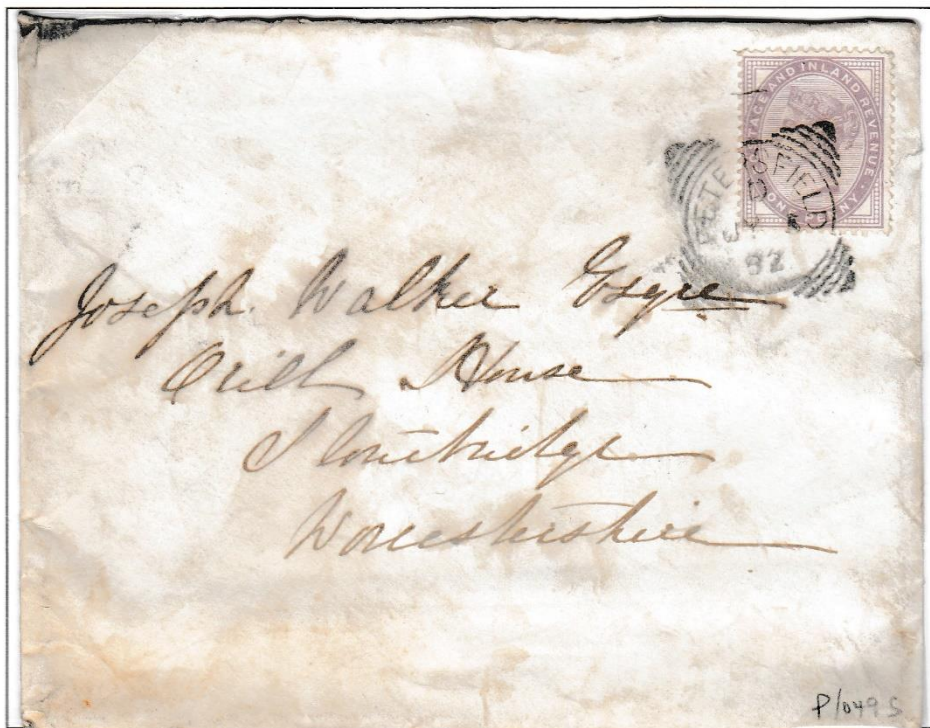 POSTAGE AND INLAND REVENUE
ONE PENNY
PETERSFIELD
92
Joseph. Walker Esqre
House
Stourbridge
Worcestershire
P/049 S